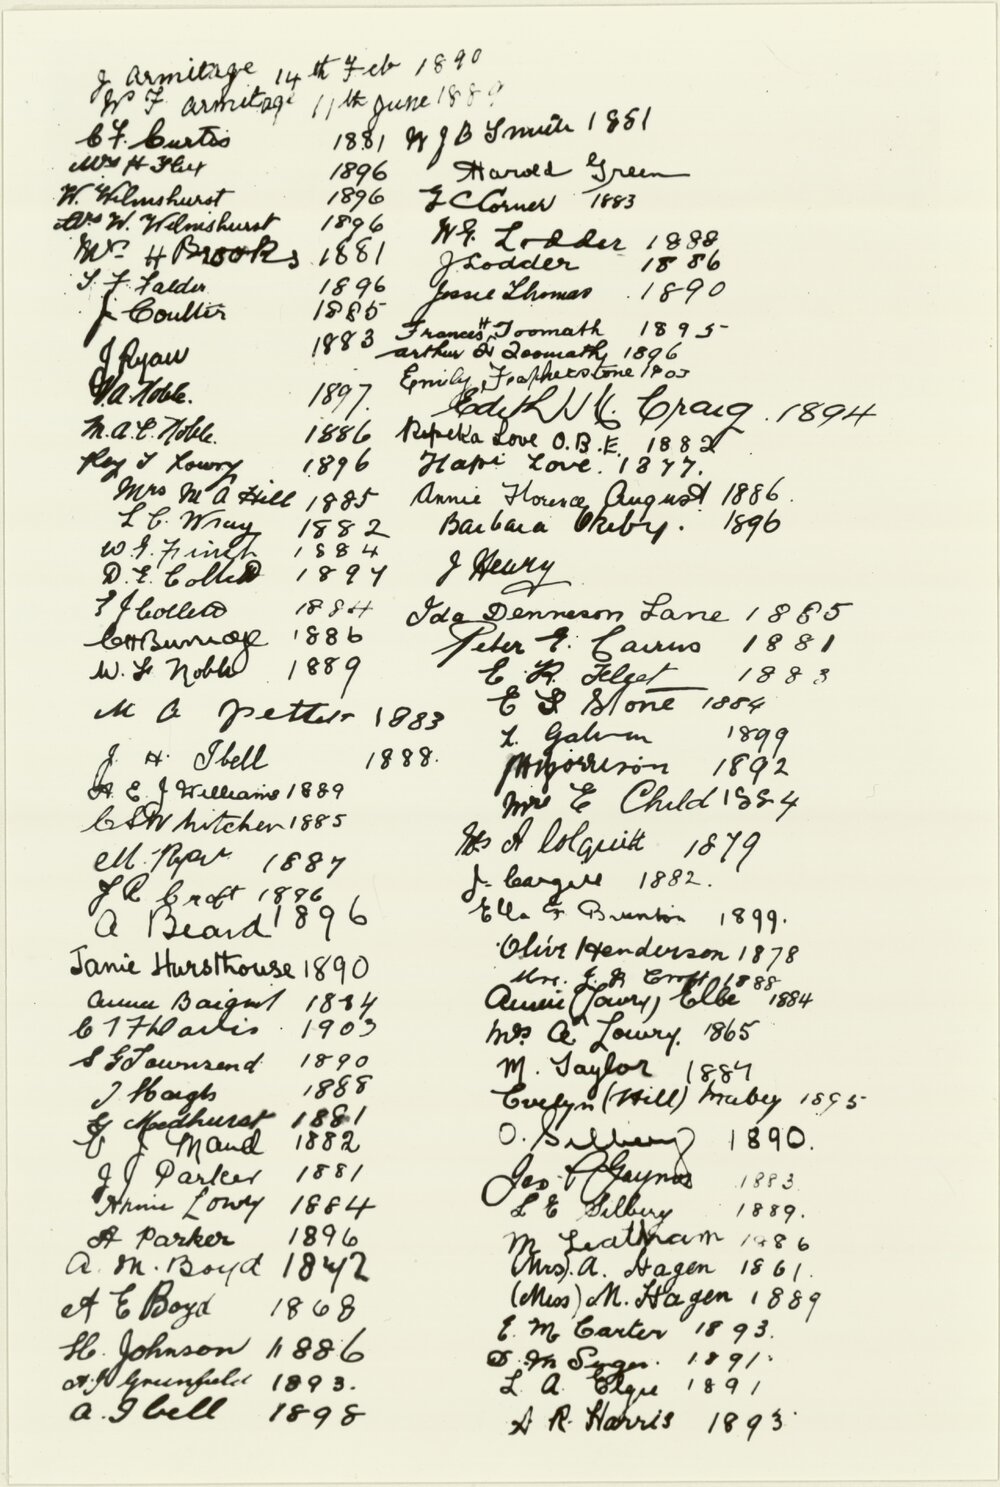 J Armitage 14th Feb 1890
W F Armitage 11th June 1889
C F. Curtis 1881
Mrs H Flet 1896
W. Wilmshurst 1896
Mrs W. Wilmshurst 1896
Mrs H Brooks 1881
T F Falder 1896
J. Coulter 1885
J Ryan 1883
A Noble. 1897
M. A. C. Noble. 1886
Roy T Lowry 1896
Mrs M A Hill 1885
L C. Wray 1882
W. G. Finch 1884
D. E. Collett 1897
J Collett 1884
C H Burridge 1886
W. F Noble 1889
M A Petter 1883
J. H. Ibell 1888.
A. E. J Williams 1889
C S W hitchen 1885
M. 1887
J R Croft 1896
A Beard 1896
Janie Hursthouse 1890
Annie Baigent 1884
C T F Davis 1903
S G Townsend 1890
J Haigh 1888
G Medhurst 1881
J Maud 1882
J J Parker 1881
Annie Lowry 1884
A Parker 1896
A. M. Boyd 1872
A E Boyd 1868
H. Johnson 1886
A. J. Greenfield 1893.
A. Ibell 1898
W J B Smith 1881
Harold Green
G C Corner 1883
W G. Lodder 1888
J Lodder 1886
Jessie Thomas 1890
Frances H. Toomath 1895
Arthur Toomath 1896
Emily Featherstone 1903
Edith Craig. 1894
Ripeka Love O.B.E. 1882
Hapi Love. 1877.
Annie Florence August 1886.
Barbara 1896
J Henry
Ida Denneson Lane 1885
Peter G. Cairns 1881
E. R. Fleet 1883
E S Stone 1884
L. Galvin 1899
Morrison 1892
Mrs E Child 1884
Mrs A Colquitt 1879
J. Cargill 1882.
Ella F Brunton 1899.
Olive Henderson 1878
Mrs. J. R Croft 1888
Annie (Lowry) Elbe 1884
Mrs A Lowry. 1865
M. Taylor 1887
Evelyn (Hill) Mabey 1895
O. Silbery 1890.
Jas. Gaynor 1883
L E Silbery 1889.
M Leatham 1886
(Mrs). A. Hagen 1861.
(Miss) M. Hagen 1889
E. M Carter 1893.
D. M 1891.
L. A. Elgie 1891
A R. Harris 1893